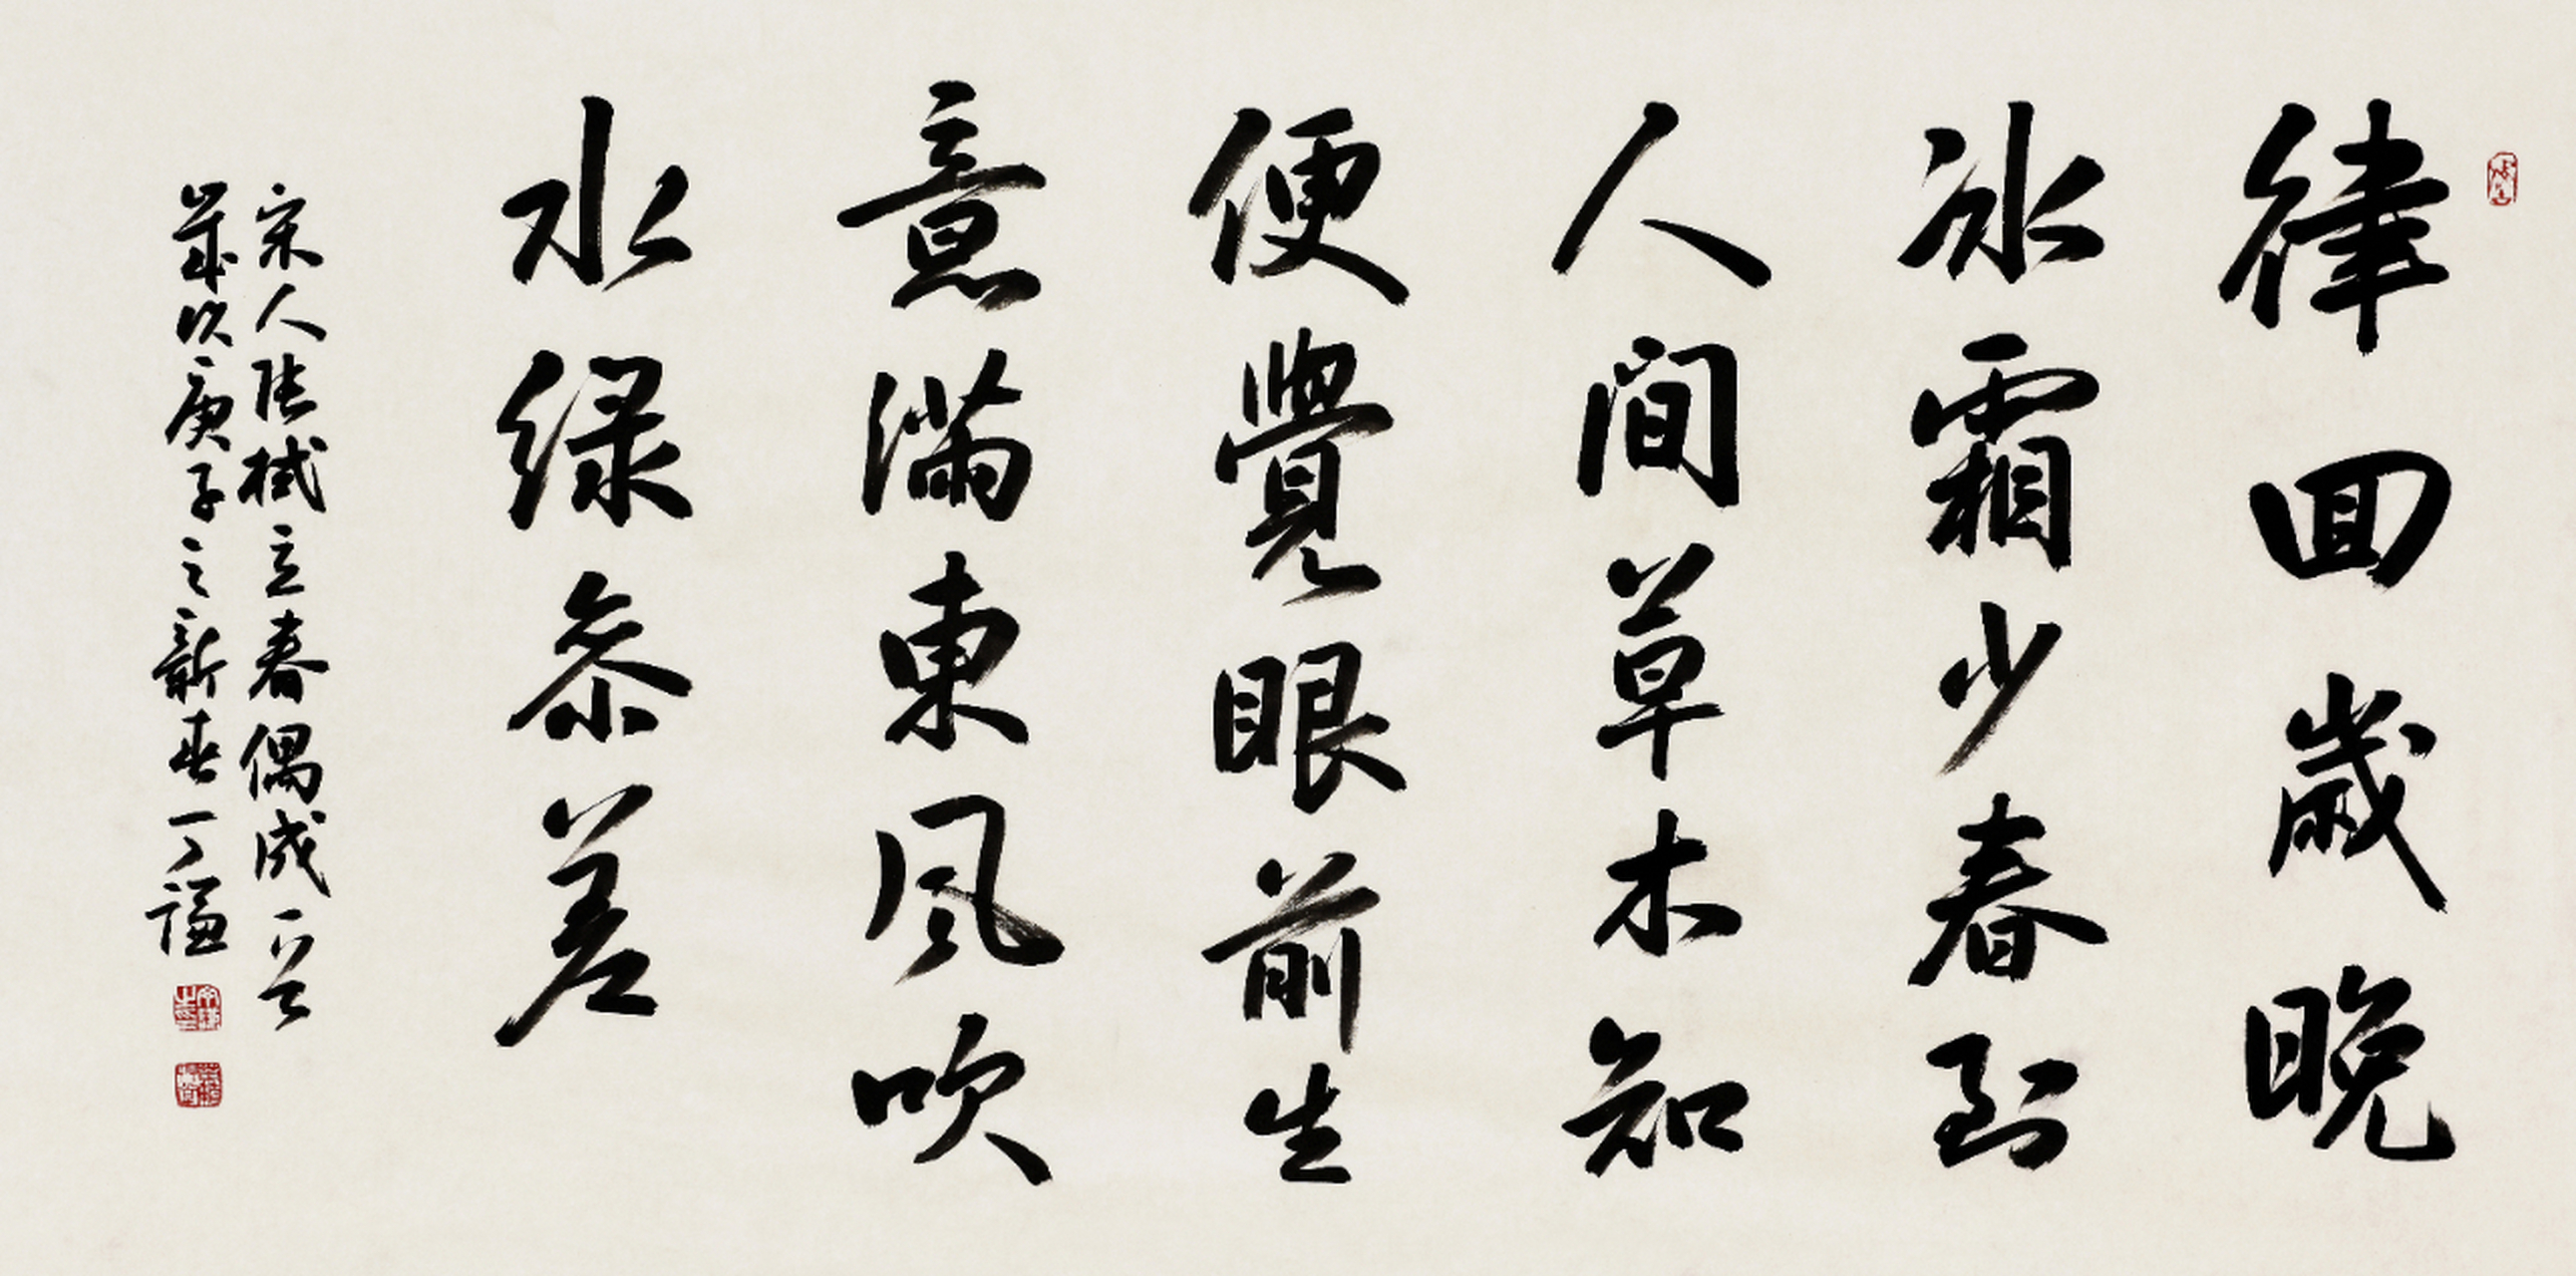 律回歲晚
冰霜少春到
人間草木知
便覺眼前生
意滿東風吹
水緑叅差
宋人張栻立春偶成一首
歲次庚子之新春丁謙